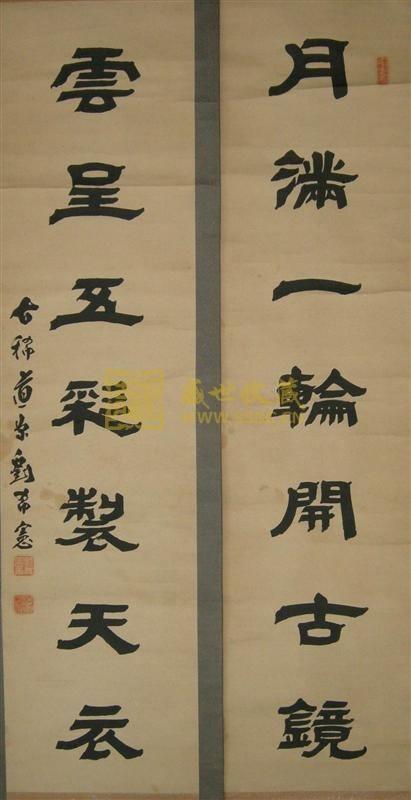 月滿一輪開古鏡
雲呈五彩製天衣
古稀道 劉希憲
盛世收藏
WWW.SSSC.CN